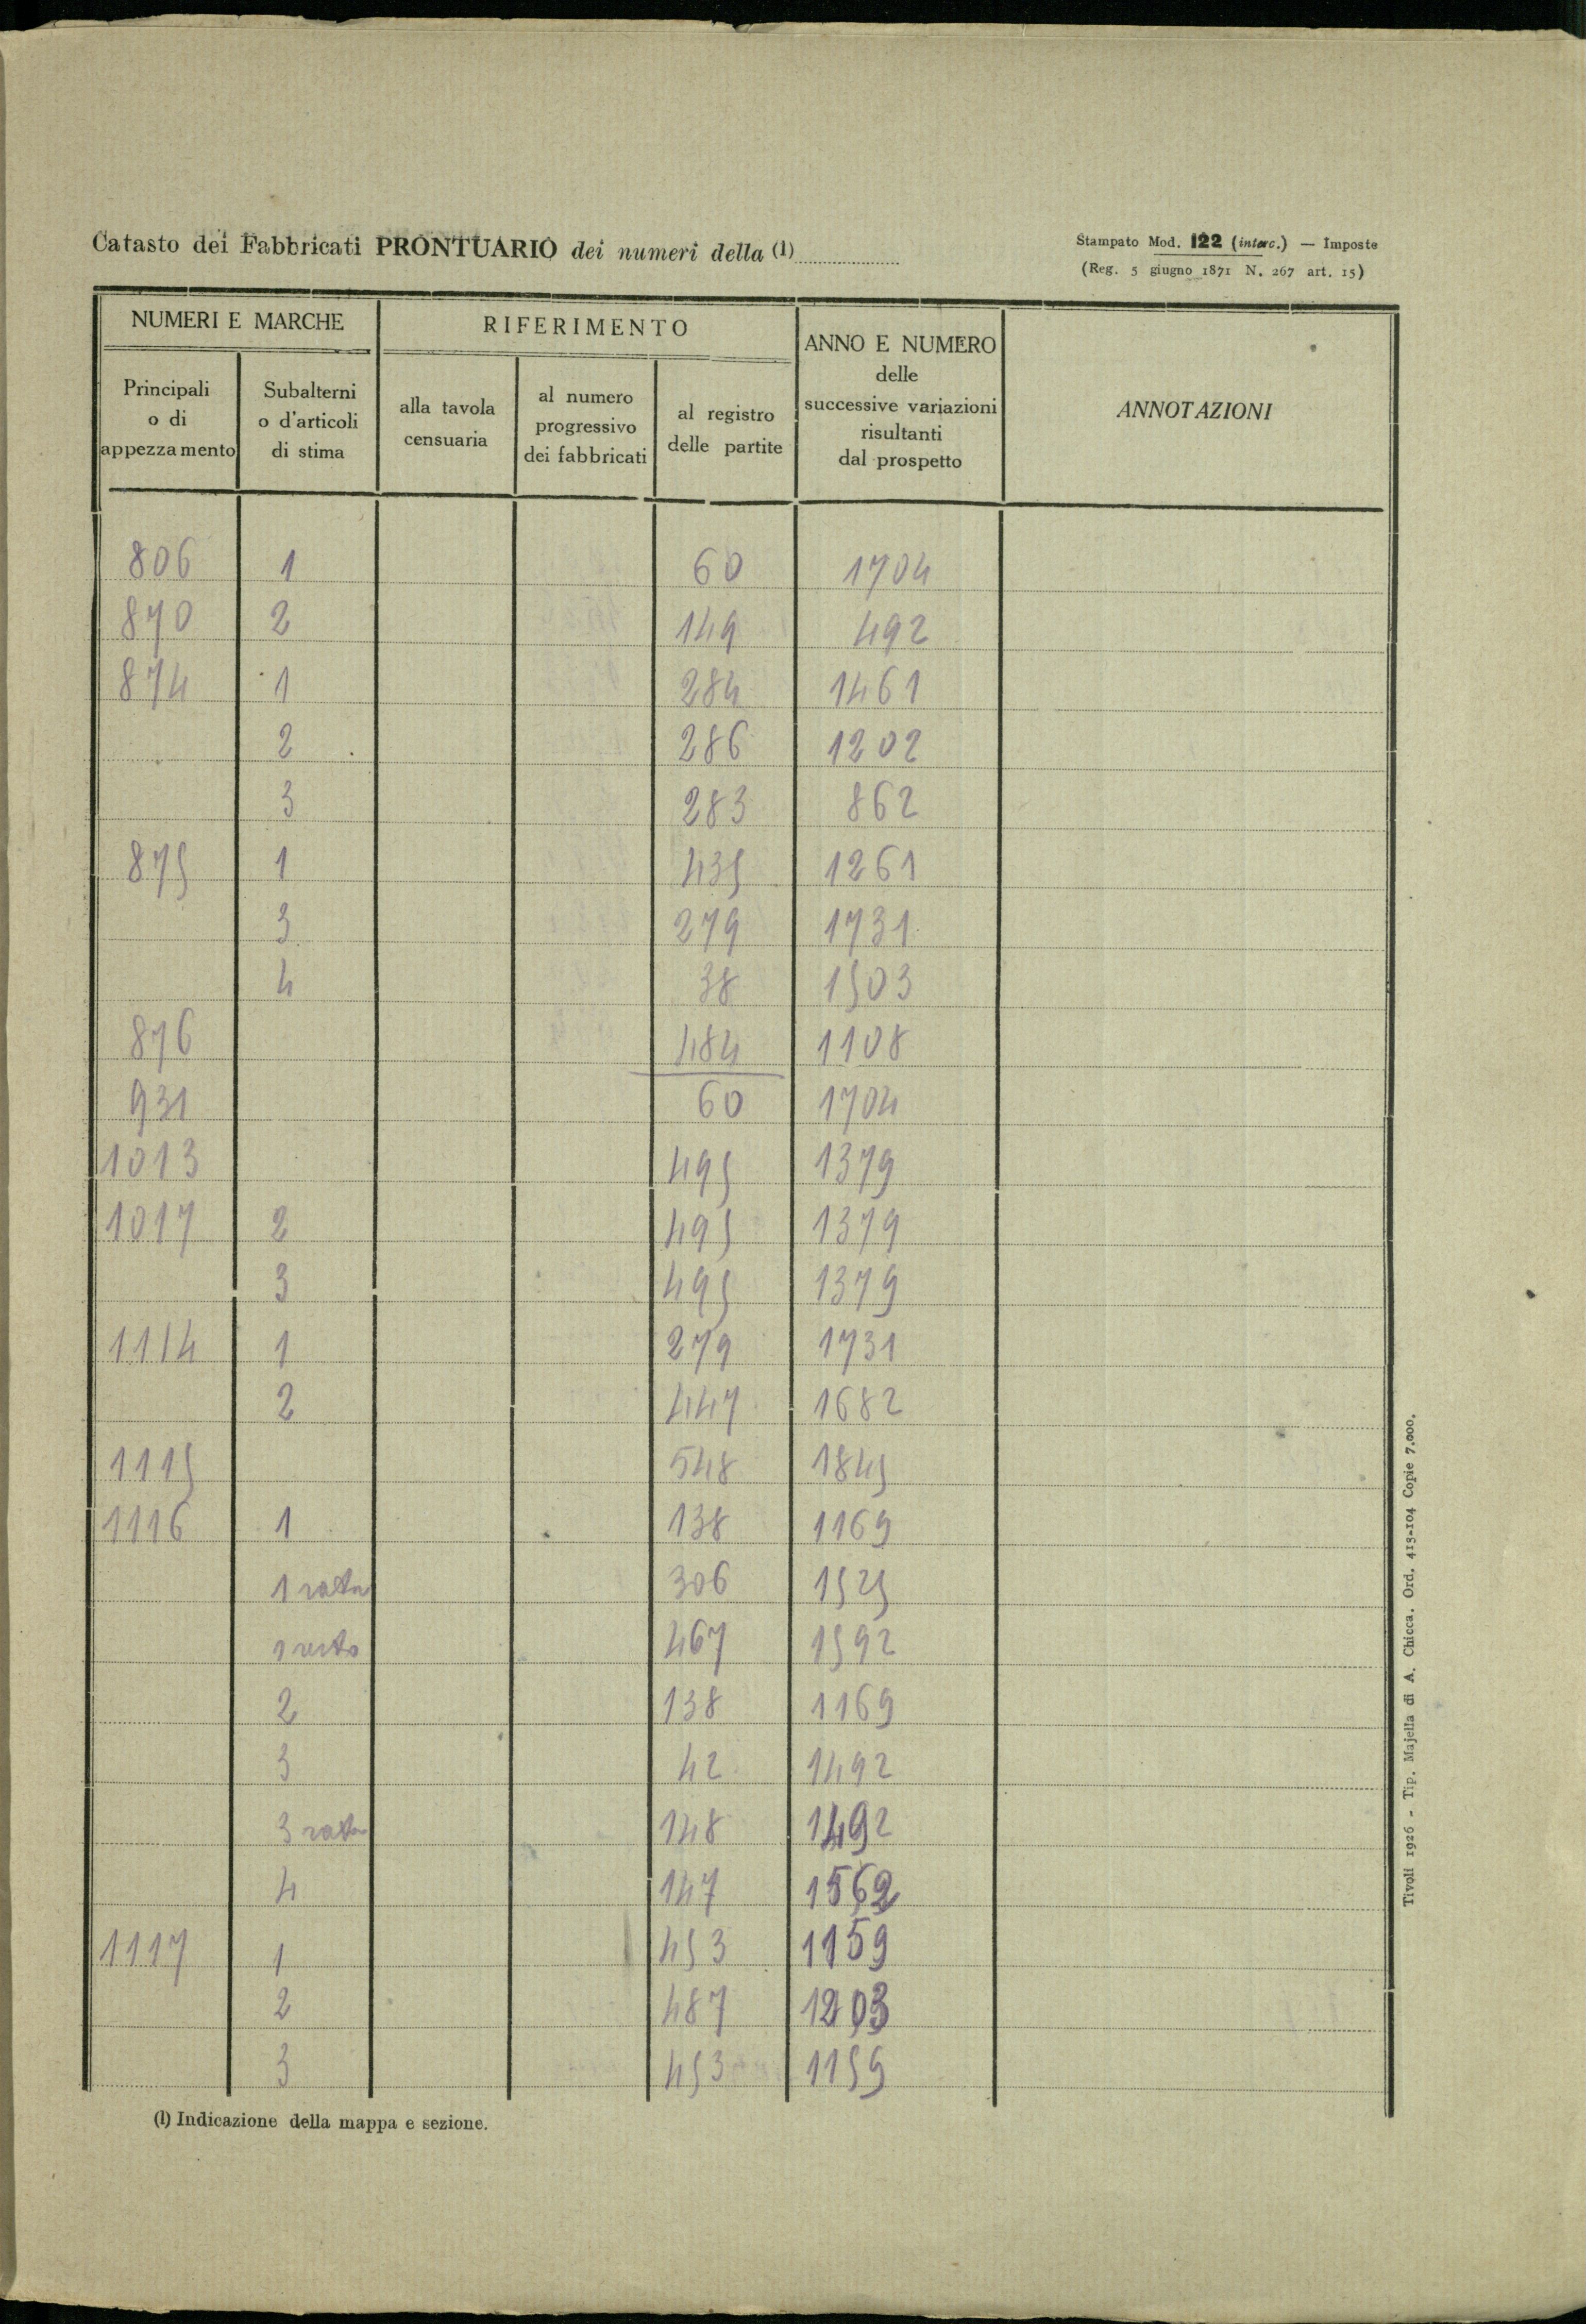 Catasto dei Fabbricati PRONTUARIO dei numeri della (1)
Stampato Mod. 122 (interc.) — Imposte
(Reg. 5 giugno 1871 N. 267 art. 15)
NUMERI E MARCHE
RIFERIMENTO
ANNO E NUMERO
delle
successive variazioni
risultanti
dal prospetto
ANNOTAZIONI
Principali
o di
appezzamento
Subalterni
o d'articoli
di stima
alla tavola
censuaria
al numero
progressivo
dei fabbricati
al registro
delle partite
806 1 60 1704
870 2 149 492
874 1 284 1461
2 286 1202
3 283 862
875 1 435 1261
3 279 1731
4 38 1503
876 484 1108
931 60 1704
1013 495 1379
1017 2 495 1379
3 495 1379
1114 1 279 1731
2 447 1682
1115 548 1845
1116 1 138 1169
1 rata 306 1525
1 resto 467 1592
2 138 1169
3 42 1492
3 rata 148 1492
4 147 1562
1117 1 453 1159
2 487 1203
3 453 1159
(1) Indicazione della mappa e sezione.
Tivoli 1926 - Tip. Majella di A. Chicca. Ord. 413-104 Copie 7.000.